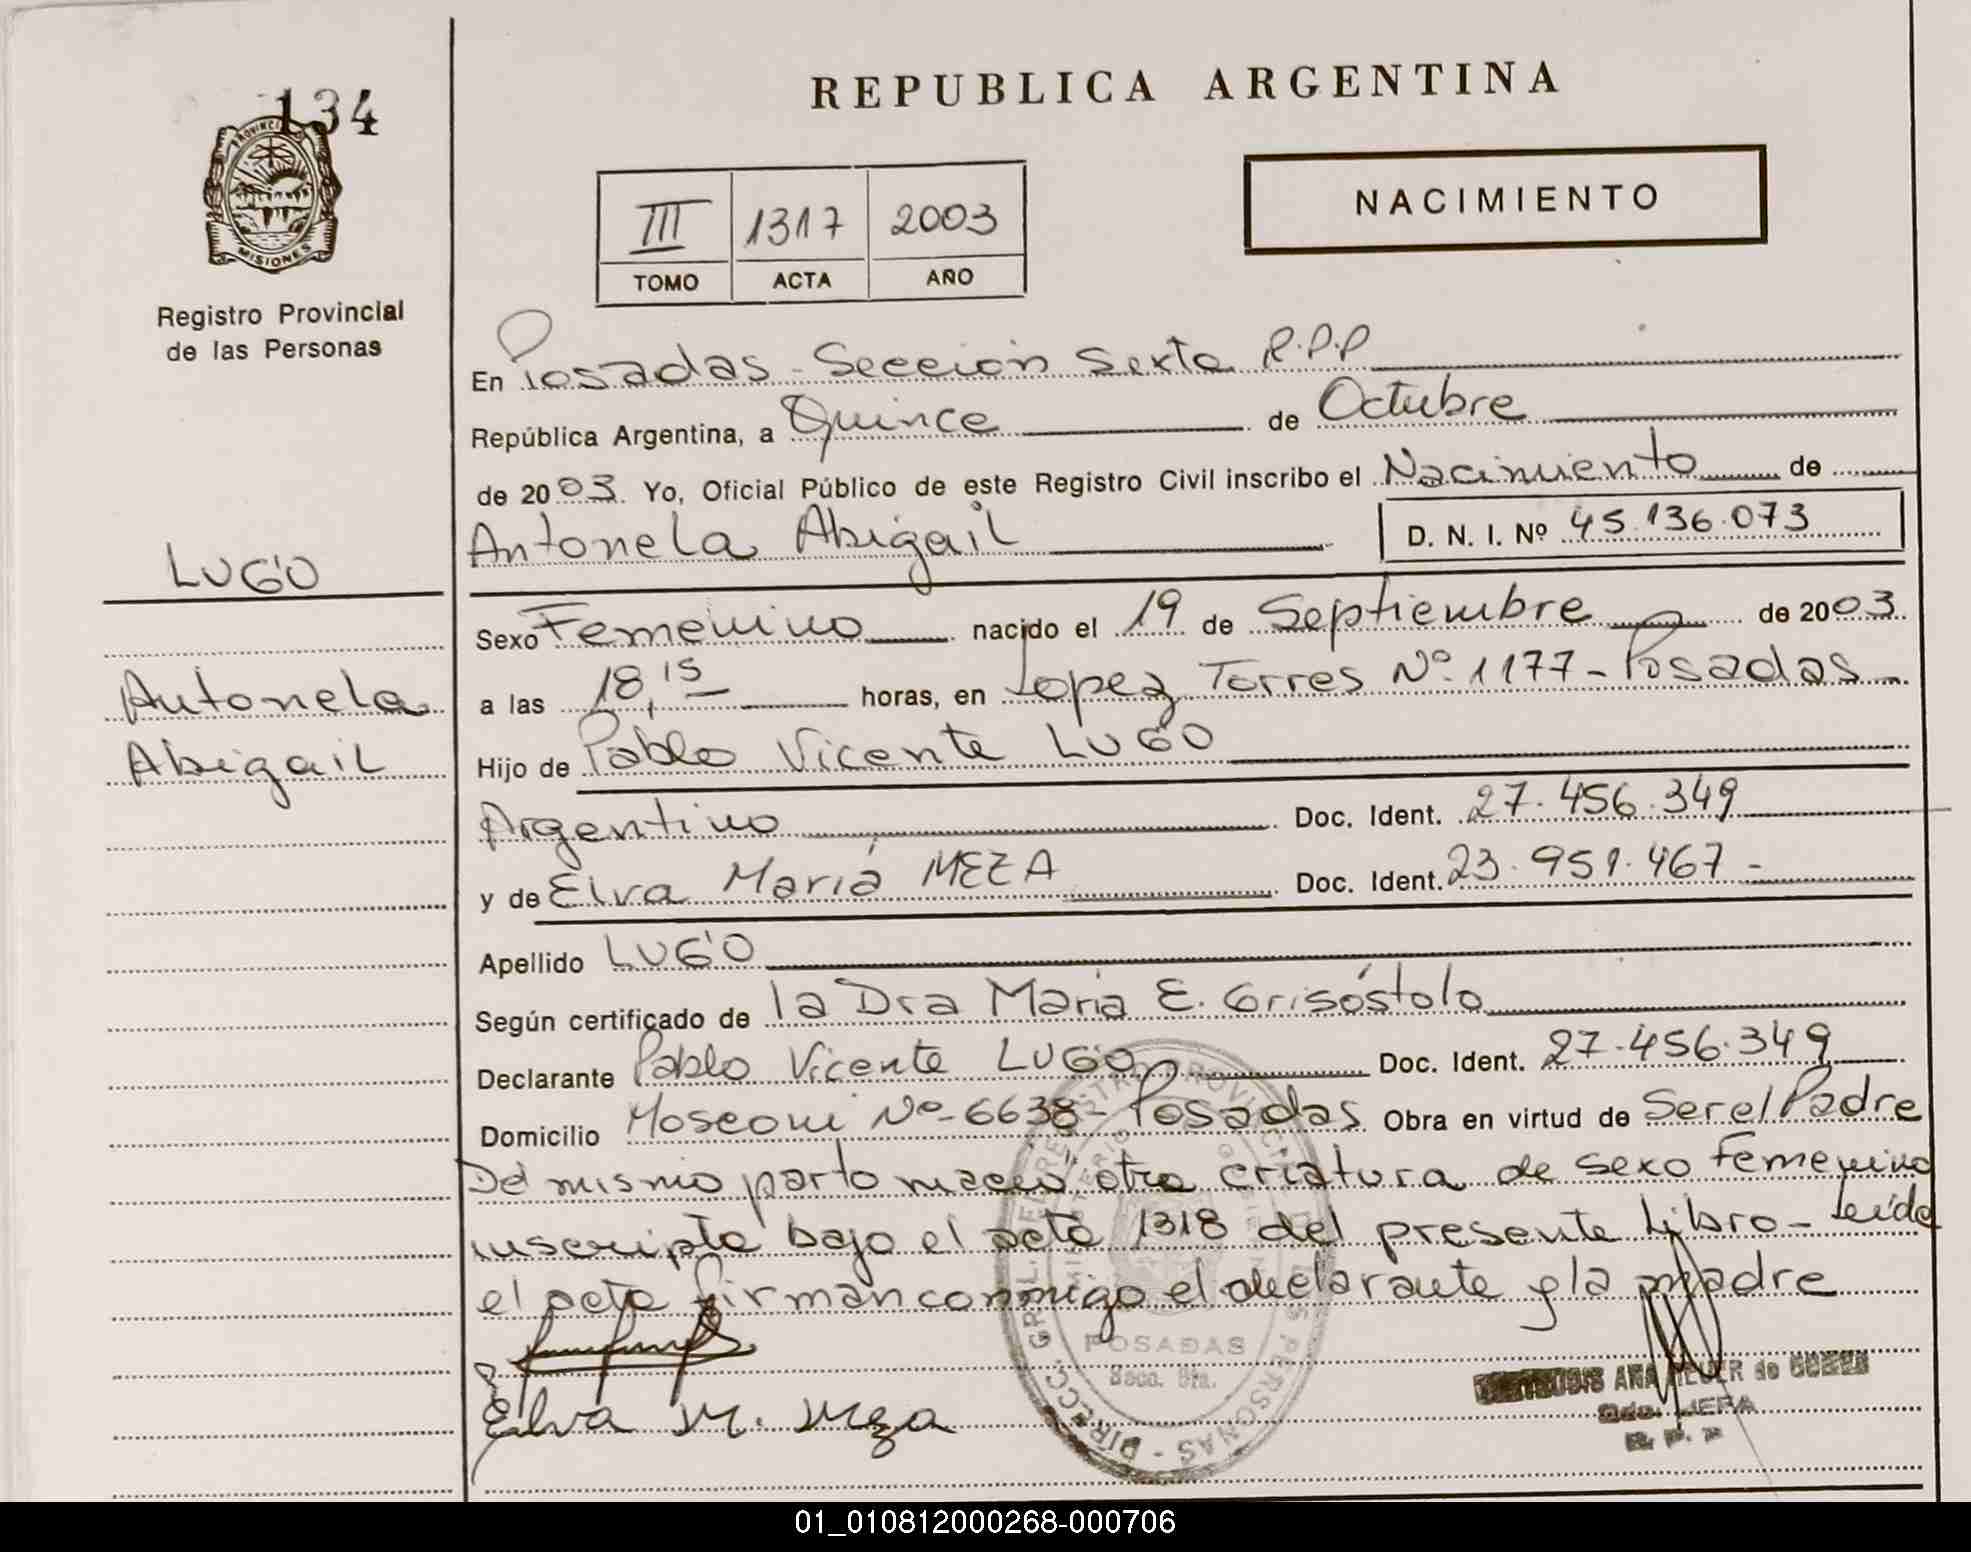 134
REPUBLICA ARGENTINA
PROVINCIA
MISIONES
Registro Provincial
de las Personas
NACIMIENTO
III 1317 2003
TOMO ACTA AÑO
En Posadas - Sección Sexta R.P.P
República Argentina, a Quince de Octubre
de 2003. Yo, Oficial Público de este Registro Civil inscribo el Nacimiento de
Antonela Abigail D. N. I. Nº 45.136.073
LUGO
Sexo Femenino nacido el 19 de Septiembre de 2003.
Antonela
a las 18,15 horas, en Lopez Torres Nº 1177 - Posadas
Abigail
Hijo de Pablo Vicente LUGO
Argentino Doc. Ident. 27.456.349
y de Elva María MEZA Doc. Ident. 23.951.467 -
Apellido LUGO
Según certificado de la Dra María E. Grisóstolo
Declarante Pablo Vicente LUGO Doc. Ident. 27.456.349
Domicilio Mosconi Nº 6638 - Posadas Obra en virtud de Ser el Padre
Del mismo parto nació otra criatura de sexo femenino
inscripta bajo el acta 1318 del presente Libro - Leída
el acta firman conmigo el declarante y la madre
POSADAS
Secc. 6ta.
Elva M. Meza
ANA de
JEFA
R. P. P
01_010812000268-000706